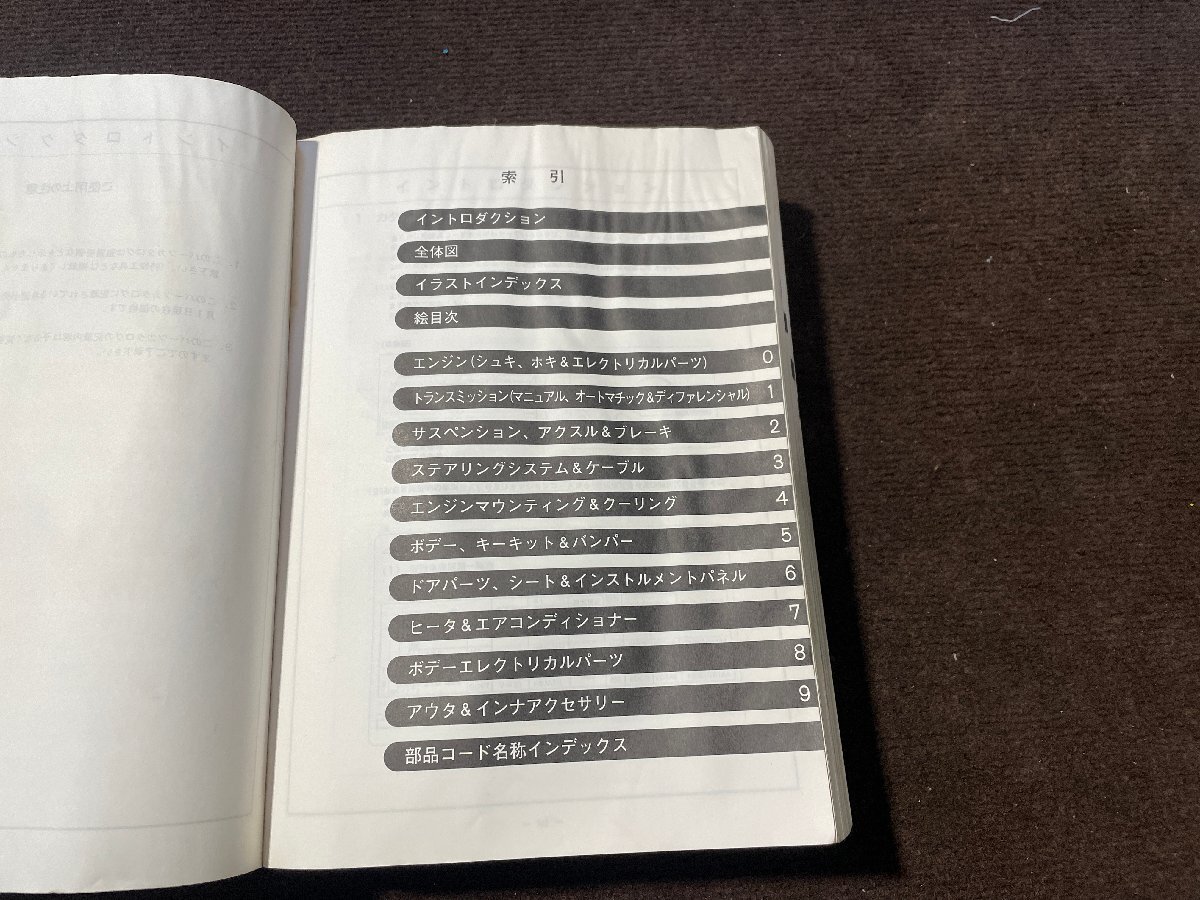 索 引
イントロダクション
全体図
イラストインデックス
絵目次
エンジン(シュキ、ホキ&エレクトリカルパーツ) 0
トランスミッション(マニュアル、オートマチック&ディファレンシャル) 1
サスペンション、アクスル&ブレーキ 2
ステアリングシステム&ケーブル 3
エンジンマウンティング&クーリング 4
ボデー、キーキット&バンパー 5
ドアパーツ、シート&インストルメントパネル 6
ヒータ&エアコンディショナー 7
ボデーエレクトリカルパーツ 8
アウタ&インナアクセサリー 9
部品コード名称インデックス